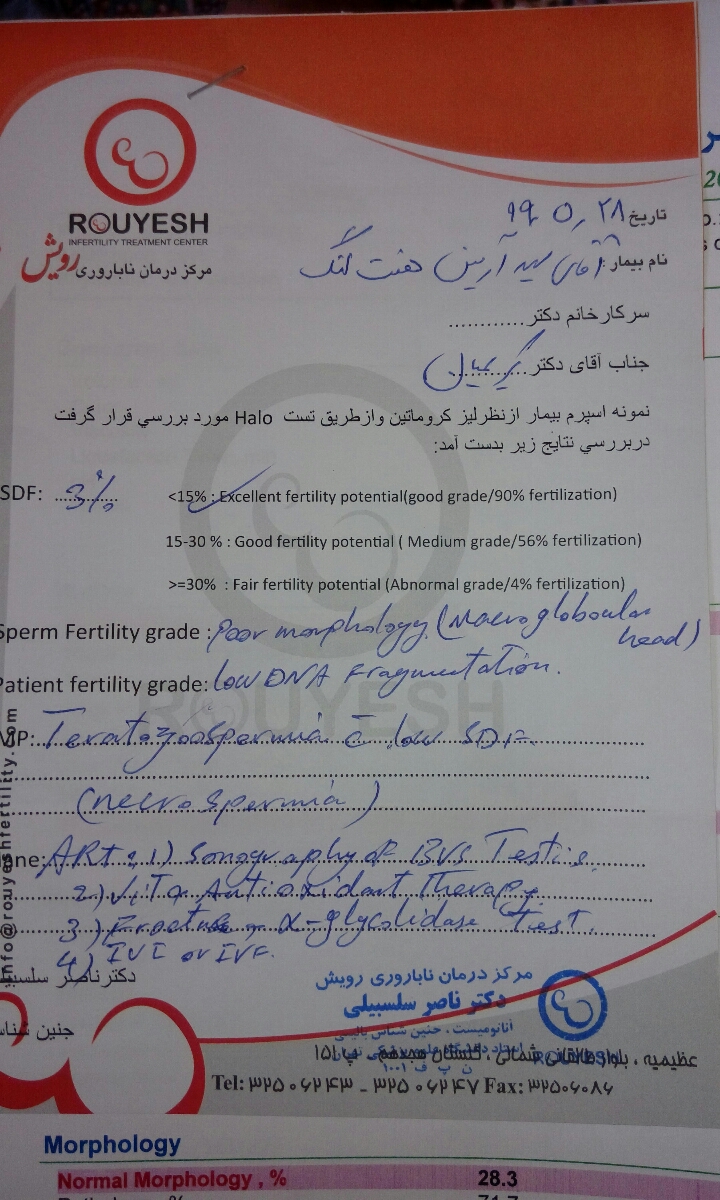 ROUYESH
INFERTILITY TREATMENT CENTER
مرکز درمان ناباروری رویش
تاریخ ۹۴, ۵, ۲۸
نام بیمار: آقای سید آرین هفت لنگ
سرکار خانم دکتر............
جناب آقای دکتر
نمونه اسپرم بیمار ازنظرلیز کروماتین وازطریق تست Halo مورد بررسي قرار گرفت
دربررسي نتایج زیر بدست آمد:
SDF: 3%
<15% : Excellent fertility potential(good grade/90% fertilization)
15-30 % : Good fertility potential ( Medium grade/56% fertilization)
>=30% : Fair fertility potential (Abnormal grade/4% fertilization)
Sperm Fertility grade : Poor morphology (Macro globoular head)
Patient fertility grade: low DNA Fragmentation.
Teratozoospermia c̄ low SDF
(necrospermia)
ART: 1) Songraphy of BVS Testis.
2) Vit & Antioxidant Therapy.
3) α-glycolidase Test.
4) IUI or IVF.
info@rouyeshfertility.com
دکترناصر سلسبیلی
جنین شناس
مرکز درمان ناباروری رویش
دکتر ناصر سلسبیلی
آناتومیست ، جنین شناس بالینی
ن پ ف ۱۰۰۱
عظیمیه ، بلوار طالقانی شمالی ، گلستان هجدهم ، پ ۱۵۱
Tel: ۳۲۵۰۶۲۴۳ _ ۳۲۵۰۶۲۴۷ Fax: ۳۲۵۰۶۰۸۶
Morphology
Normal Morphology , % 28.3
71.7